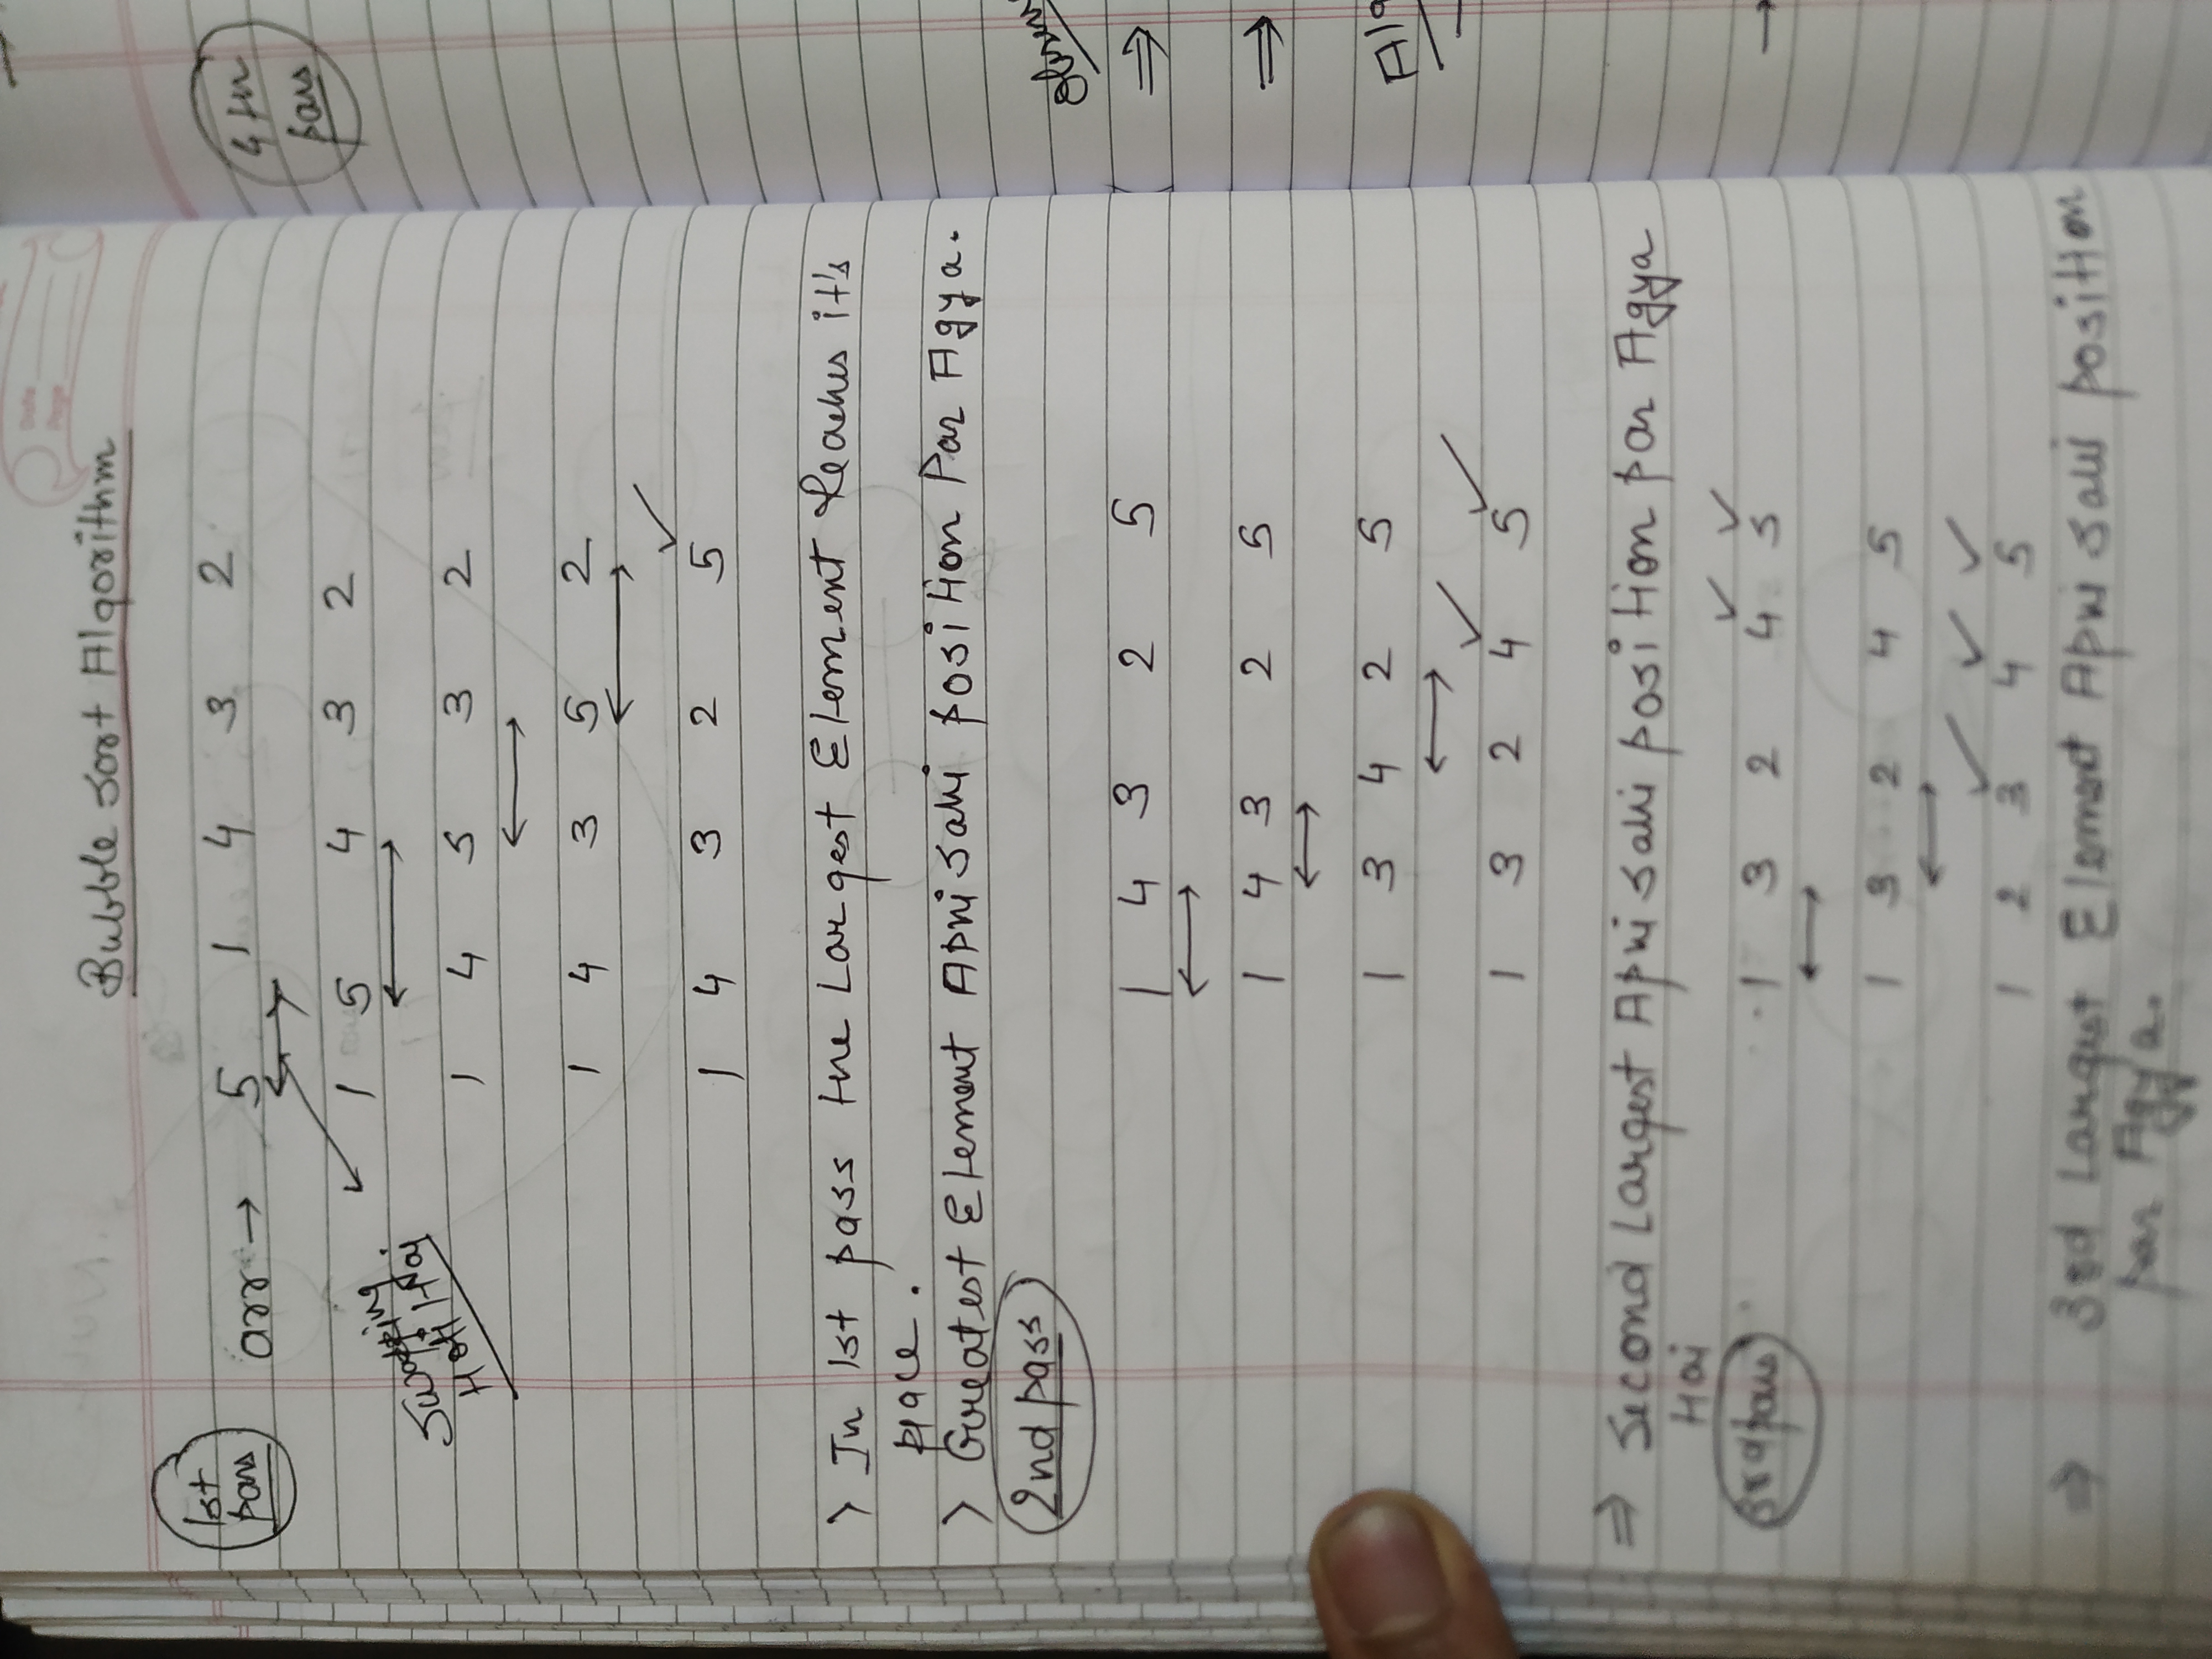 Date
Page
Bubble Sort Algorithm
1st
pass
arr → 5 1 4 3 2
1 5 4 3 2
Swapping
Hoti Hai
1 4 5 3 2
1 4 3 5 2
✓
1 4 3 2 5
> In 1st pass the Largest Element Reaches it's
place.
> Greatest Element Apni Sahi position Par Agya.
2nd pass
1 4 3 2 5
1 4 3 2 5
1 3 4 2 5
✓ ✓
1 3 2 4 5
⇒ Second Largest Apni Sahi position par Agya
Hai
✓ ✓
3rd pass 1 3 2 4 5
1 3 2 4 5
✓ ✓ ✓
1 2 3 4 5
⇒ 3rd Largest Element Apni Sahi position
par Agya.
4th
pass
⇒
⇒
→